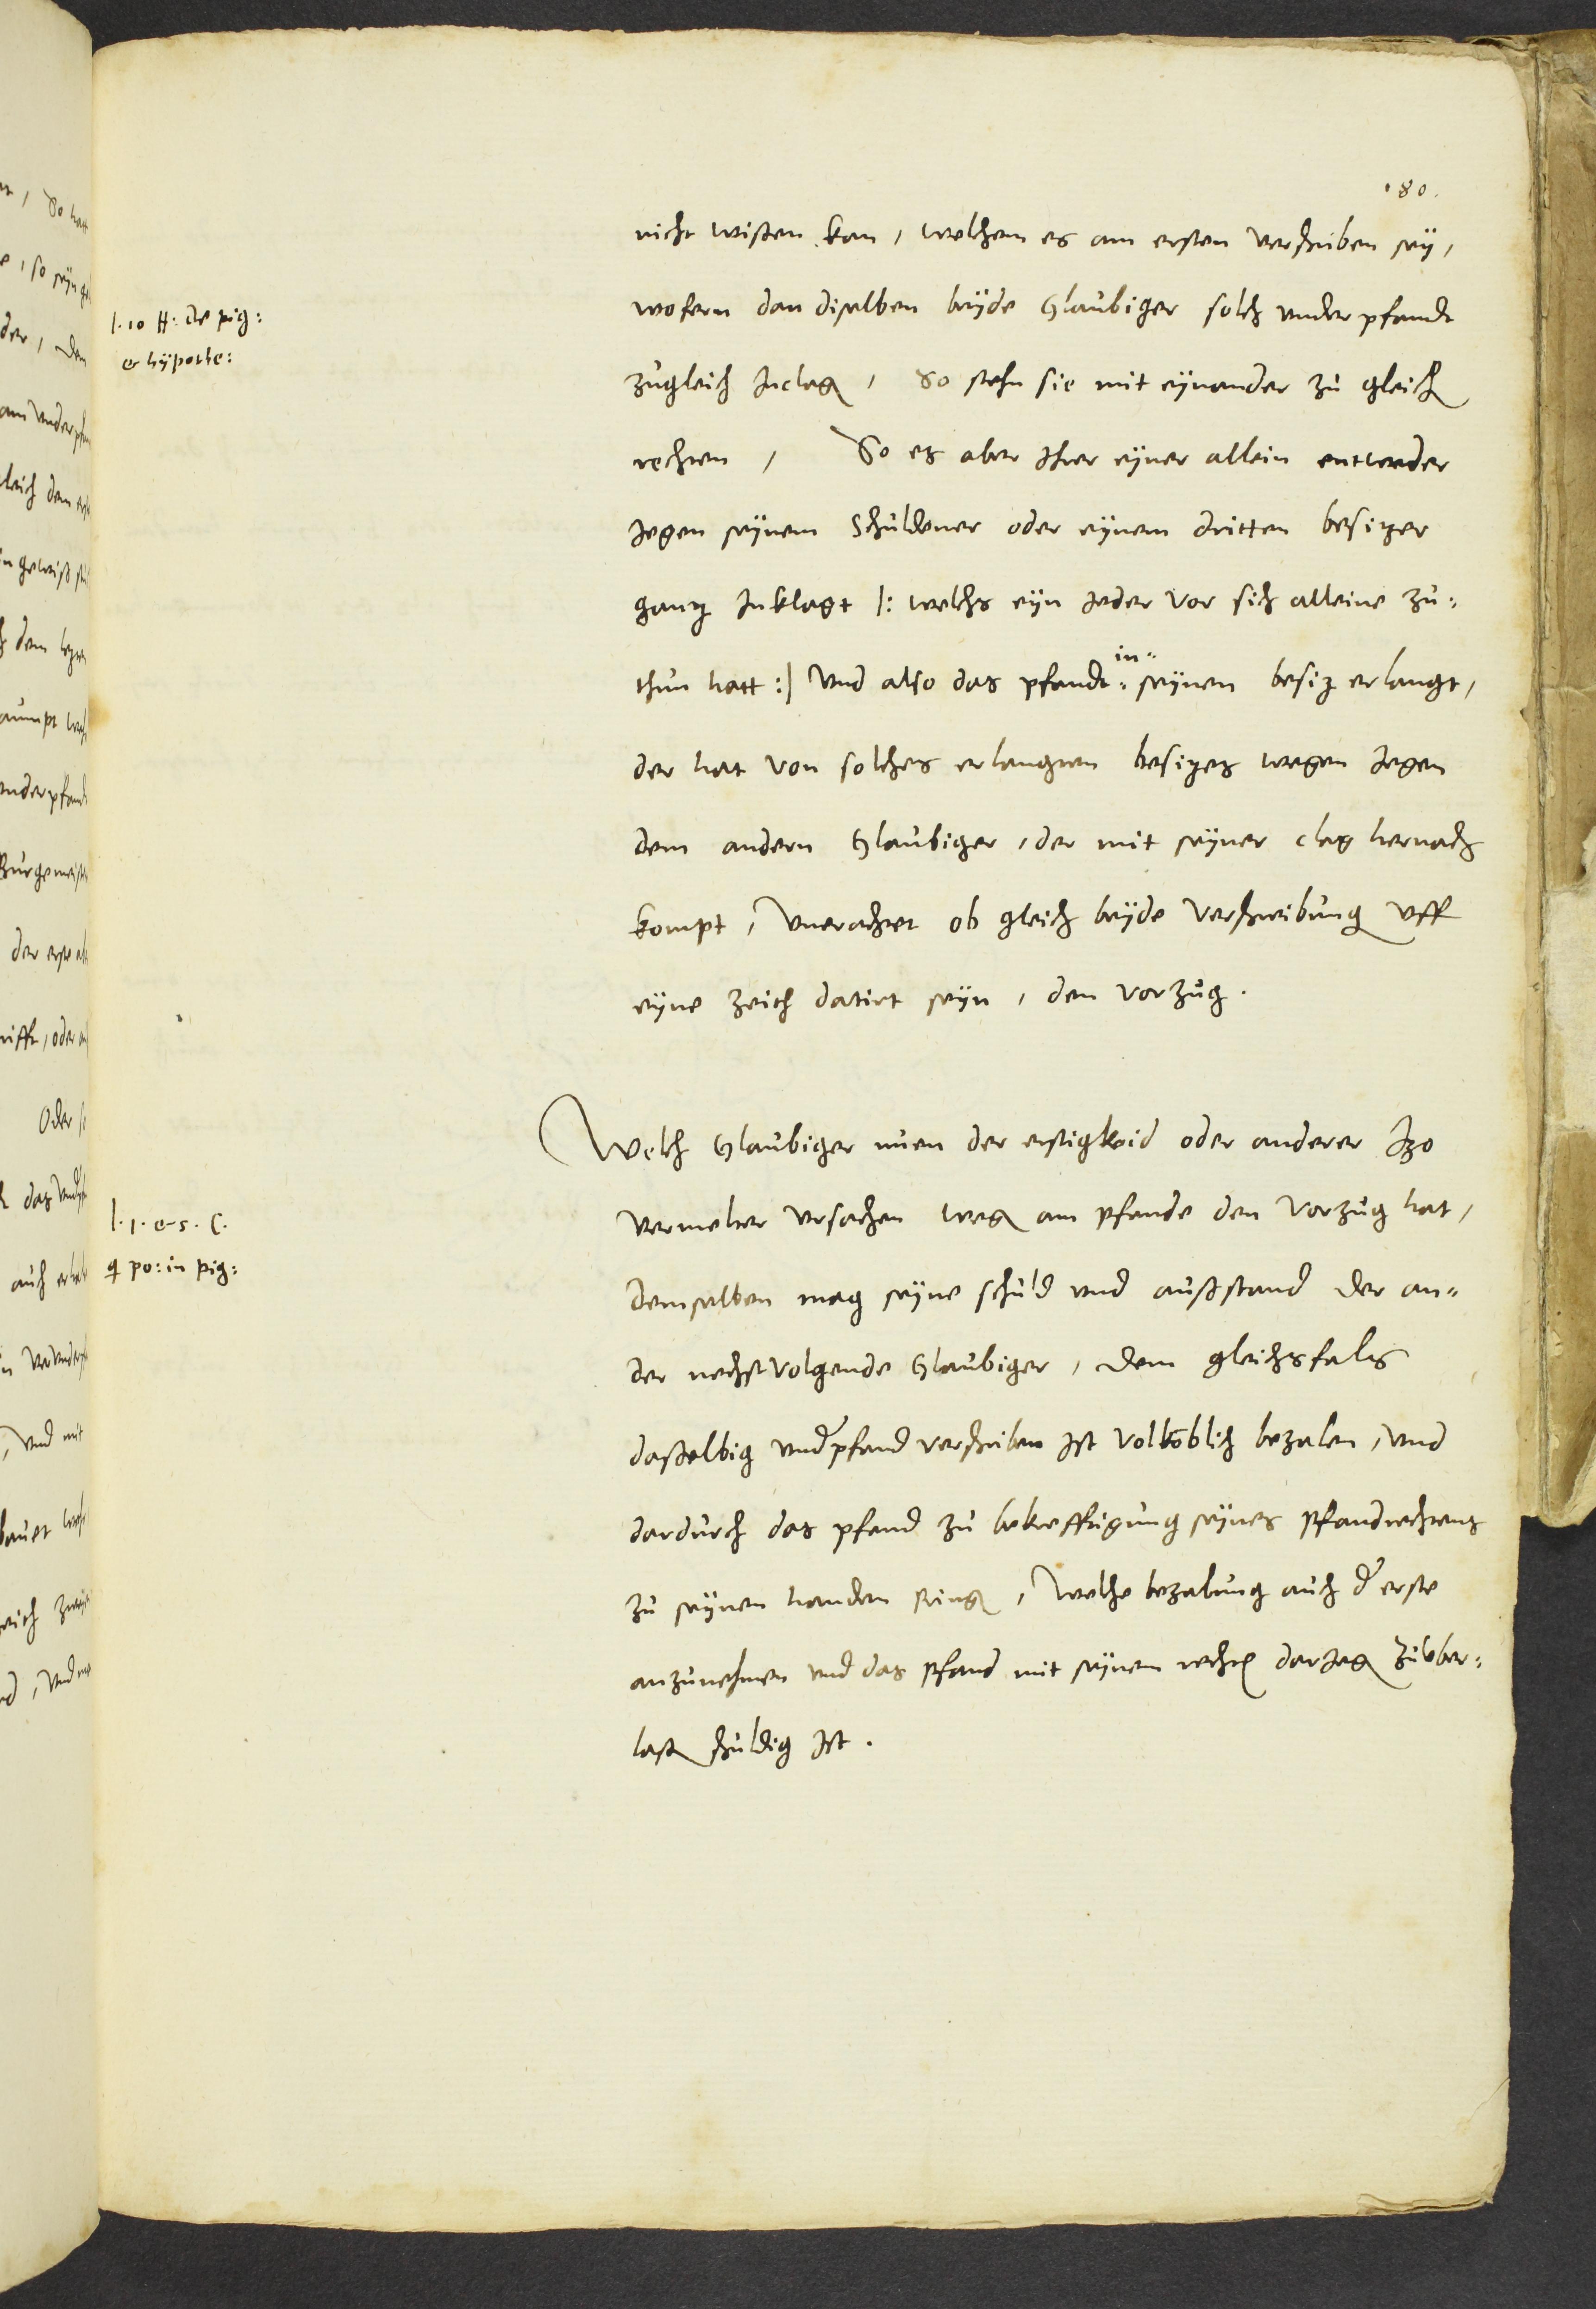 180.
nicht wissen kan, welchem es am ersten verschriben seÿ,
wofern dan diselben beÿde Glaubiger solch underpfandt
l. 10 ff: de pig:
& hÿpothe:
zugleich Inclag, So stehn sie mit eÿnander zu gleich
rechten, So es aber Ihrer eÿner allein entweder
Jegen seÿnem Schuldener oder eÿnem dritten besitzer
gantz Inklagt |: welchs eÿn Jeder vor sich alleine zu=
in=
thun hatt :| und also das pfandt= seÿnen besitz erlangt,
der hat von solches erlangten besitzes wegen Jegen
dem andern Glaubiger, der mit seÿner clag hernach
kompt, unerachtet ob gleich beÿde verschreibung uff
eÿne zeith datirt seÿn, den vorzug.
Welch Glaubiger nuen der erstigkeid oder anderer Itzo
vermelter ursachen weg am pfande den vorzug hat,
l. 1. e. 5. C.
q po: in pig:
demselben mag seÿne schuld und aussstand der an=
der nechstvolgende Glaubiger, dem gleichsfals
dasselbig underpfand verschriben Ist volkoblich bezalen, und
dardurch das pfand zu bekrefftigung seÿnes pfandrechtens
zu seÿnen handen pring, welche bezalung auch der erste
anzunehmen und das pfand mit seÿnem recht darJeg zuvber=
lass schuldig Ist.